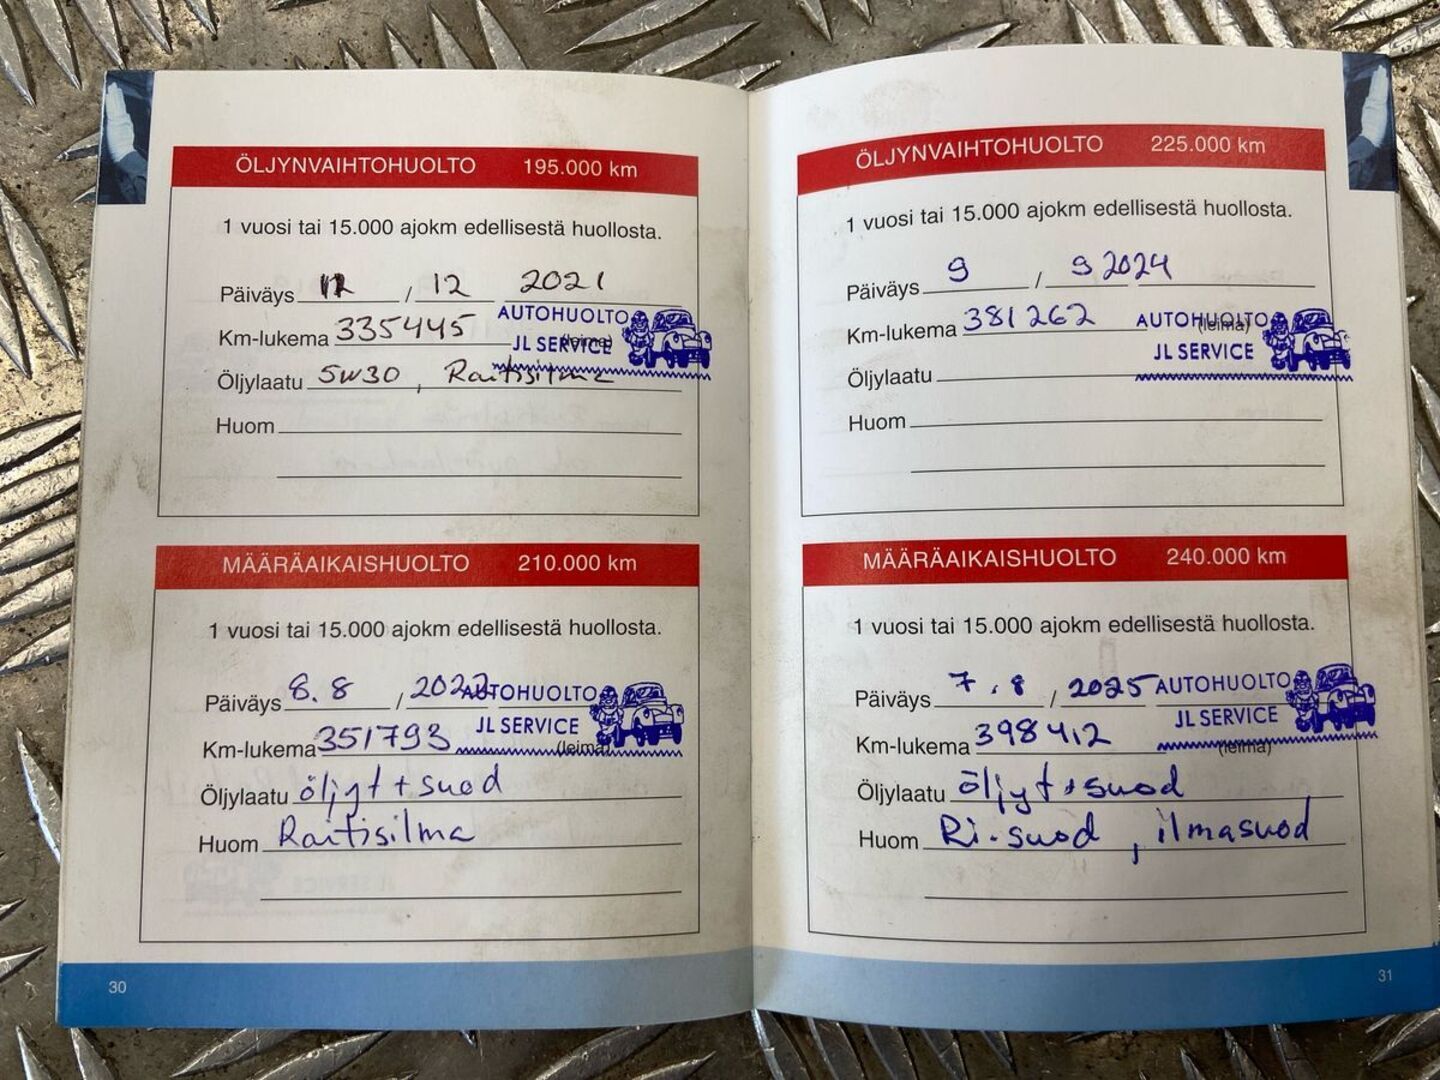 ÖLJYNVAIHTOHUOLTO 195.000 km
1 vuosi tai 15.000 ajokm edellisestä huollosta.
Päiväys 12 / 12 2021
Km-lukema 335445 (leima)
AUTOHUOLTO
JL SERVICE
Öljylaatu 5W30, Raitisilma
Huom
MÄÄRÄAIKAISHUOLTO 210.000 km
1 vuosi tai 15.000 ajokm edellisestä huollosta.
Päiväys 8.8 / 2022
AUTOHUOLTO
JL SERVICE
Km-lukema 351793 (leima)
Öljylaatu öljyt + suod
Huom Raitisilma
30
ÖLJYNVAIHTOHUOLTO 225.000 km
1 vuosi tai 15.000 ajokm edellisestä huollosta.
Päiväys 9 / 9 2024
Km-lukema 381262 (leima)
AUTOHUOLTO
JL SERVICE
Öljylaatu
Huom
MÄÄRÄAIKAISHUOLTO 240.000 km
1 vuosi tai 15.000 ajokm edellisestä huollosta.
Päiväys 7.8 / 2025
AUTOHUOLTO
JL SERVICE
Km-lukema 398412 (leima)
Öljylaatu öljyt + suod
Huom Ri-suod, ilmasuod
31